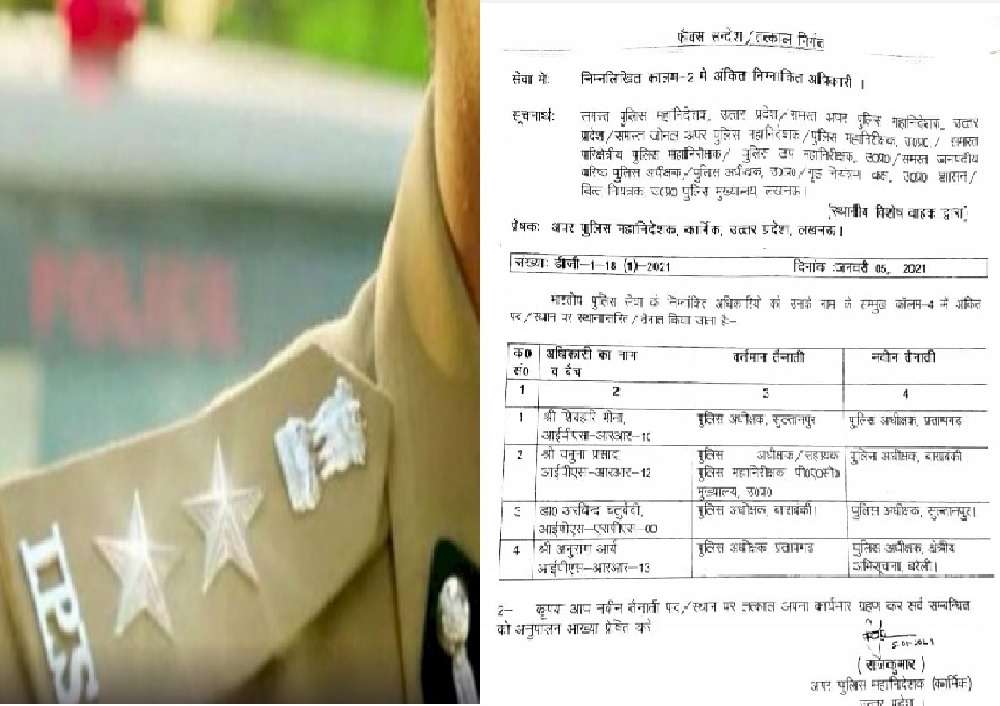 POLICE
IPS
फैक्स सन्देश/तत्काल निर्गत
सेवा में: निम्नलिखित कालम-2 में अंकित निम्नांकित अधिकारी ।
सूचनार्थ: समस्त पुलिस महानिदेशक, उत्तर प्रदेश/समस्त अपर पुलिस महानिदेशक, उत्तर
प्रदेश/समस्त जोनल अपर पुलिस महानिदेशक/पुलिस महानिरीक्षक, उ0प्र0/ समस्त
परिक्षेत्रीय पुलिस महानिरीक्षक/ पुलिस उप महानिरीक्षक, उ0प्र0/समस्त जनपदीय
वरिष्ठ पुलिस अधीक्षक/पुलिस अधीक्षक, उ0प्र0/गृह नियंत्रण कक्ष, उ0प्र0 शासन/
वित्त नियंत्रक उ0प्र0 पुलिस मुख्यालय लखनऊ।
(स्थानीय विशेष वाहक द्वारा)
प्रेषक: अपर पुलिस महानिदेशक, कार्मिक, उत्तर प्रदेश, लखनऊ।
संख्या: डीजी-1-18 (1)-2021 दिनांक :जनवरी 05, 2021
भारतीय पुलिस सेवा के निम्नांकित अधिकारियों को उनके नाम के सम्मुख कॉलम-4 में अंकित
पद/स्थान पर स्थानान्तरित/तैनात किया जाता है:-
क0 सं0 अधिकारी का नाम व बैच वर्तमान तैनाती नवीन तैनाती
1 2 3 4
1 श्री शिवहरि मीना, आईपीएस-आरआर-10 पुलिस अधीक्षक, सुल्तानपुर पुलिस अधीक्षक, प्रतापगढ
2 श्री यमुना प्रसाद आईपीएस-आरआर-12 पुलिस अधीक्षक/सहायक पुलिस महानिरीक्षक पी0ए0सी0 मुख्यालय, उ0प्र0 पुलिस अधीक्षक, बाराबंकी
3 डा0 अरविन्द चतुर्वेदी, आईपीएस-एसपीएस-00 पुलिस अधीक्षक, बाराबंकी। पुलिस अधीक्षक, सुल्तानपुर।
4 श्री अनुराग आर्य आईपीएस-आरआर-13 पुलिस अधीक्षक प्रतापगढ पुलिस अधीक्षक, क्षेत्रीय अभिसूचना, बरेली।
2- कृपया आप नवीन तैनाती पद/स्थान पर तत्काल अपना कार्यभार ग्रहण कर सर्व सम्बन्धित
को अनुपालन आख्या प्रेषित करें
( राजकुमार )
अपर पुलिस महानिदेशक (कार्मिक)
उत्तर प्रदेश ।